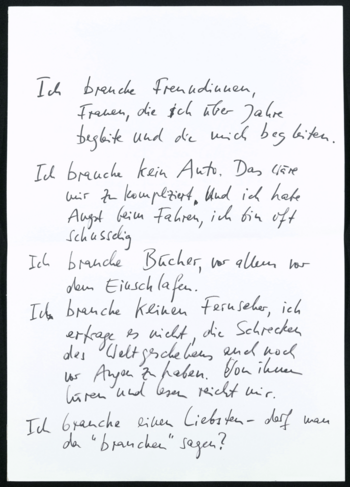 Ich brauche Freundinnen,
Frauen, die ich über Jahre
begleite und die mich begleiten.
Ich brauche kein Auto. Das wäre
mir zu kompliziert. Und ich habe
Angst beim Fahren, ich bin oft
schusslig
Ich brauche Bücher, vor allem vor
dem Einschlafen.
Ich brauche keinen Fernseher, ich
ertrage es nicht, die Schrecken
des Weltgeschehens auch noch
vor Augen zu haben. Von ihnen
hören und lesen reicht mir.
Ich brauche einen Liebsten – darf man
da "brauchen" sagen?